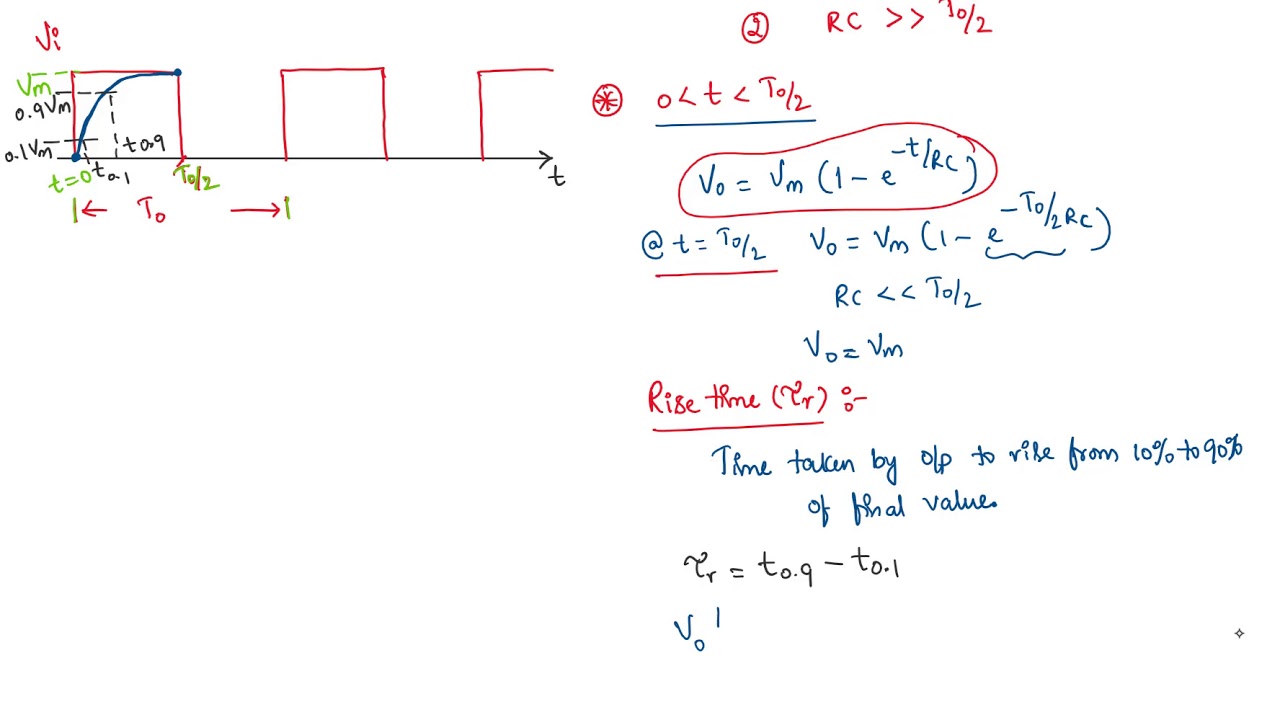 Vi
Vm
0.9Vm
0.1Vm
t0.9
t=0
t0.1
T0/2
t
T0
② RC >> T0/2
* 0 < t < T0/2
V0 = Vm (1 - e^-t/RC)
@ t = T0/2 V0 = Vm (1 - e^-T0/2RC)
RC << T0/2
V0 = Vm
Rise time (τr) :-
Time taken by o/p to rise from 10% to 90%
of final value.
τr = t0.9 - t0.1
V0 |